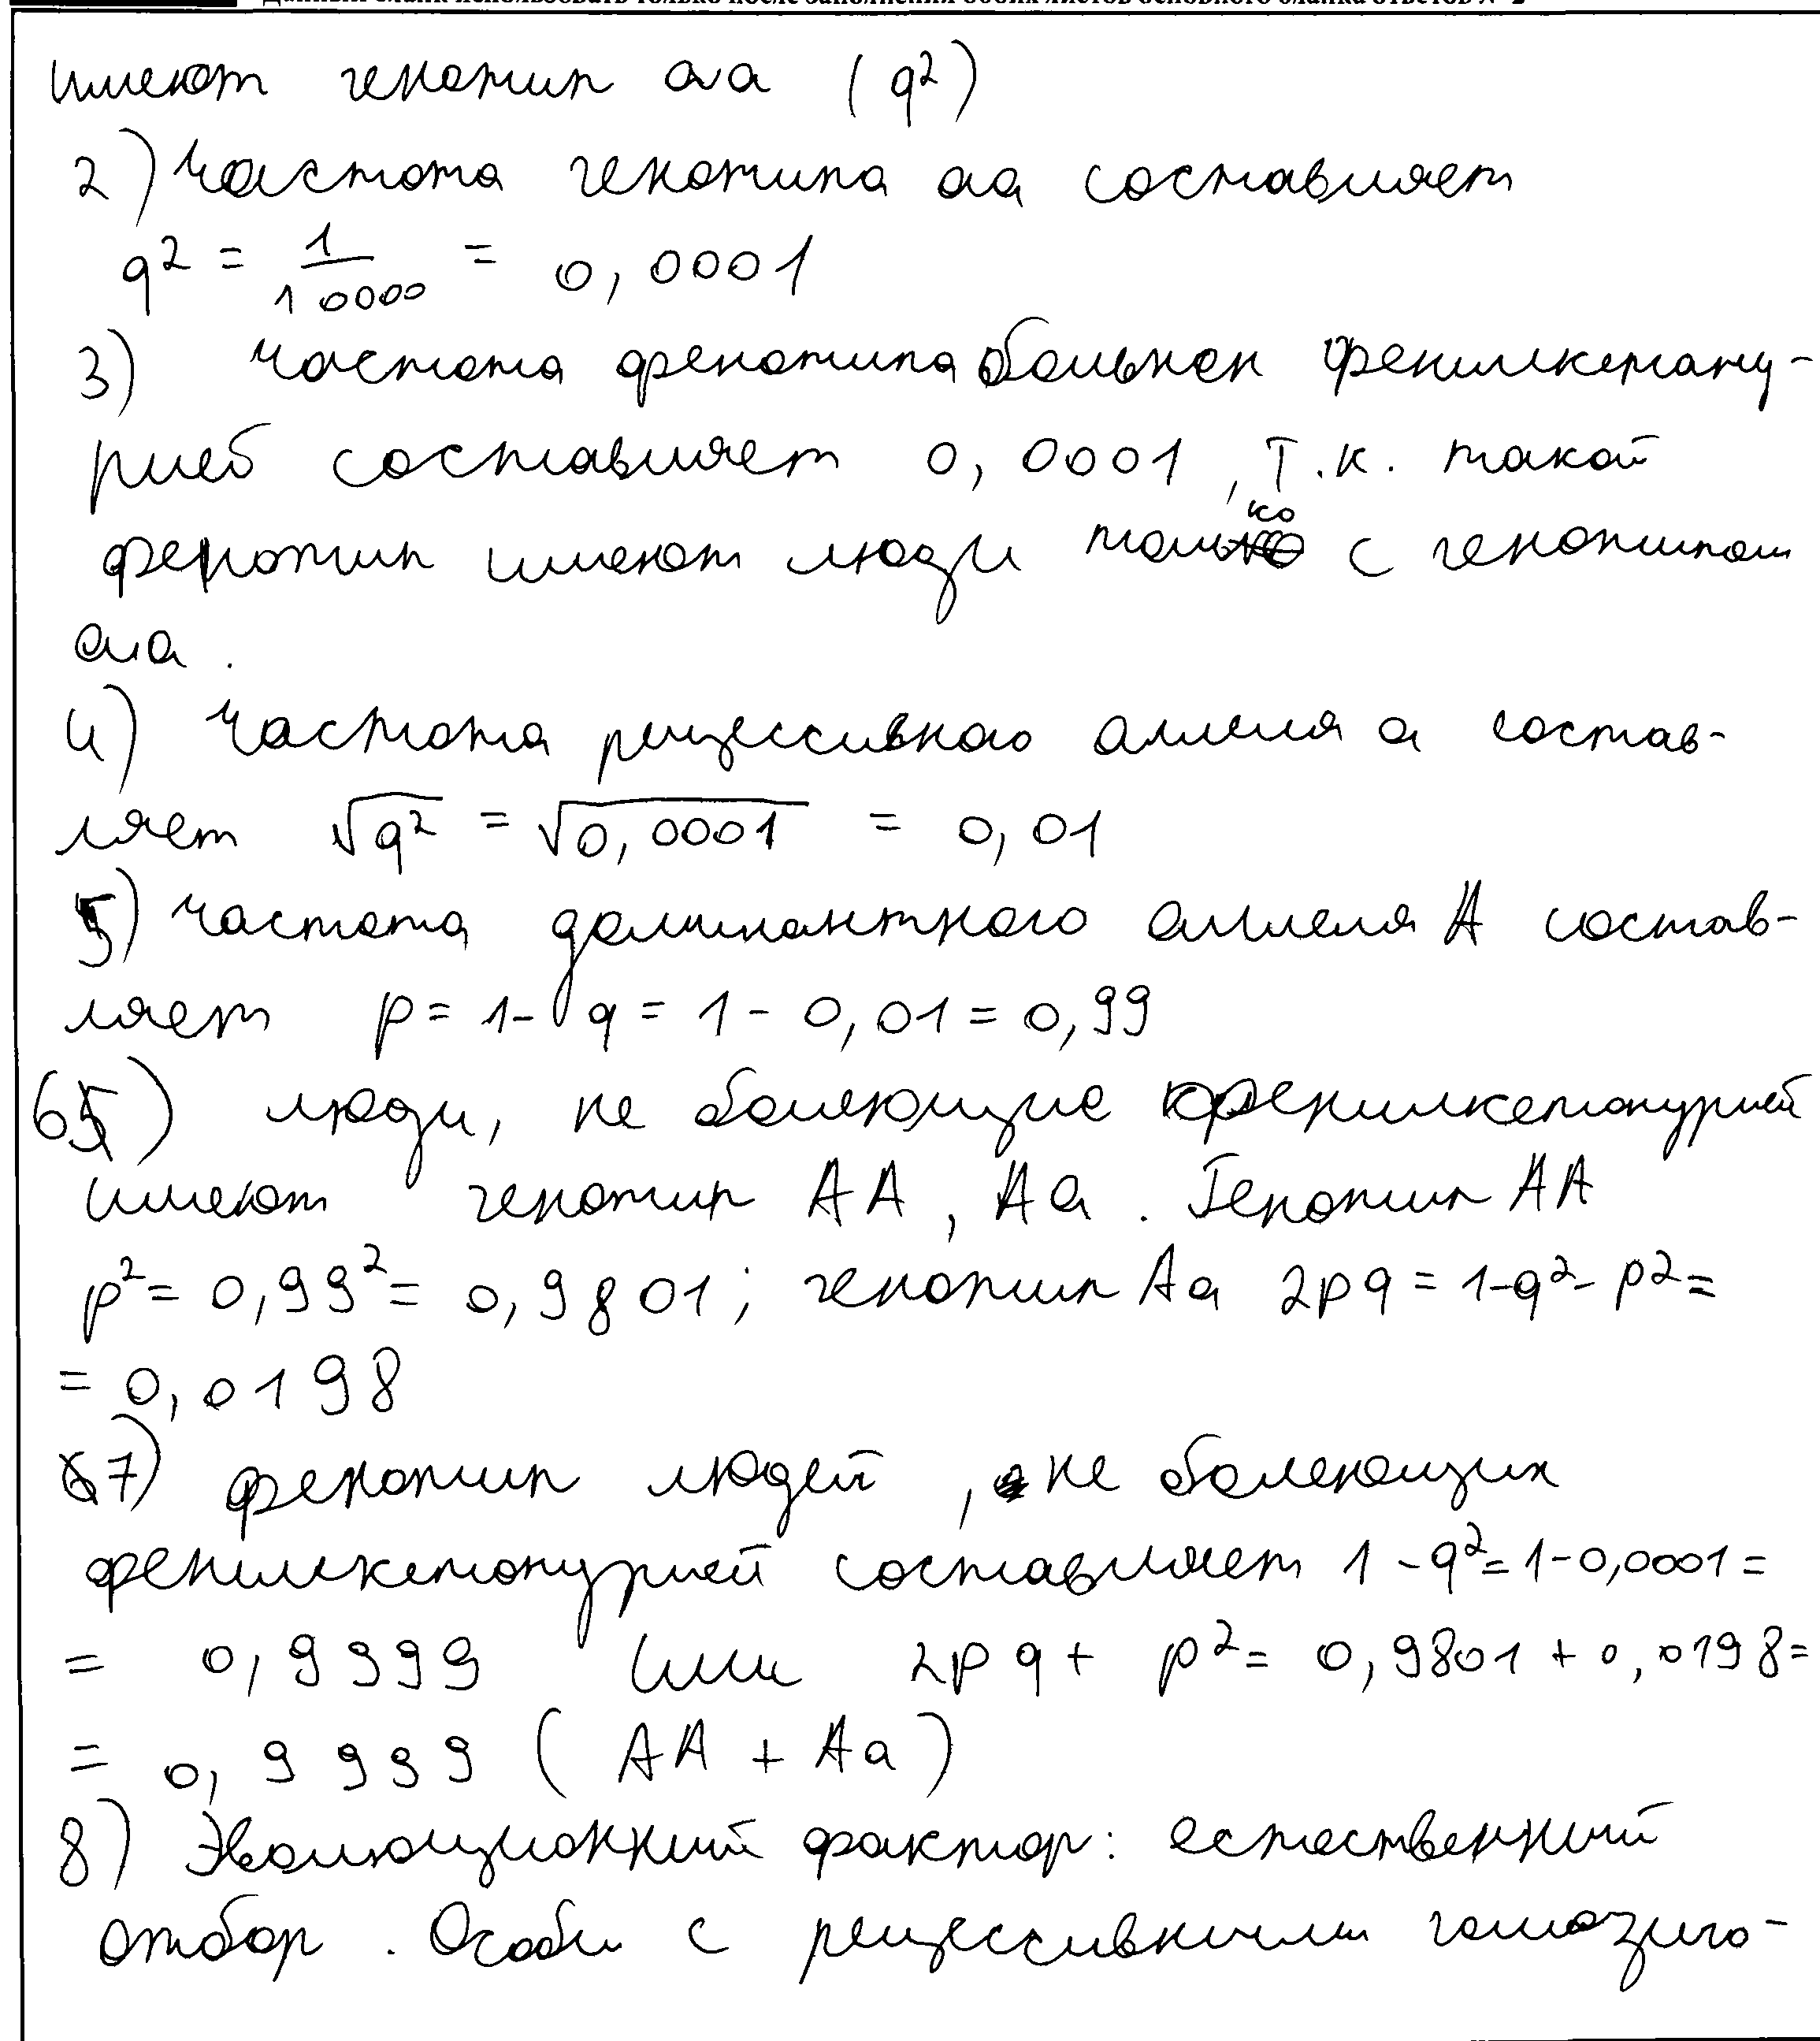 Данный бланк использовать только после заполнения обоих листов основного бланка ответов № 2
имеют генотип аа (q²)
2) Частота генотипа аа составляет
q² = 1/10000 = 0,0001
3) частота фенотипа больнсн фенилкетану-
рией составляет 0,0001, т.к. такой
фенотип имеют люди только с генотипом
аа.
4) Частота рецессивного аллеля а состав-
ляет √q² = √0,0001 = 0,01
5) частота доминантного аллеля А состав-
ляет p = 1 - q = 1 - 0,01 = 0,99
6) люди, не болеющие фенилкетонурией
имеют генотип АА, Аа. Генотип АА
p² = 0,99² = 0,9801; генотип Аа 2pq = 1-q²-p² =
= 0,0198
7) фенотип людей, не болеющих
фенилкетонурией составляет 1 - q² = 1-0,0001 =
= 0,9999 или 2pq + p² = 0,9801 + 0,0198 =
= 0,9999 (АА + Аа)
8) Эволюционный фактор: естественный
отбор. Особи с рецессивными гомозиго-